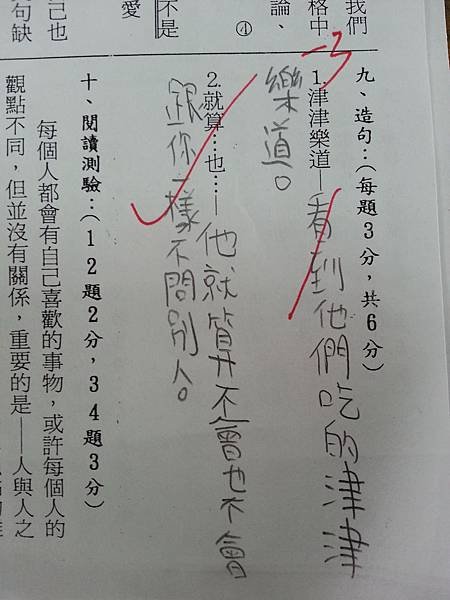 我們
格中
論、
④
不是
愛
己也
句缺
-3
九、造句：(每題3分，共6分)
1.津津樂道—看到他們吃的津津
樂道。
2.就算…也…—他就算不會也不會
跟你一樣不問別人。
十、閱讀測驗：(12題2分，34題3分)
每個人都會有自己喜歡的事物，或許每個人的
觀點不同，但並沒有關係，重要的是——人與人之